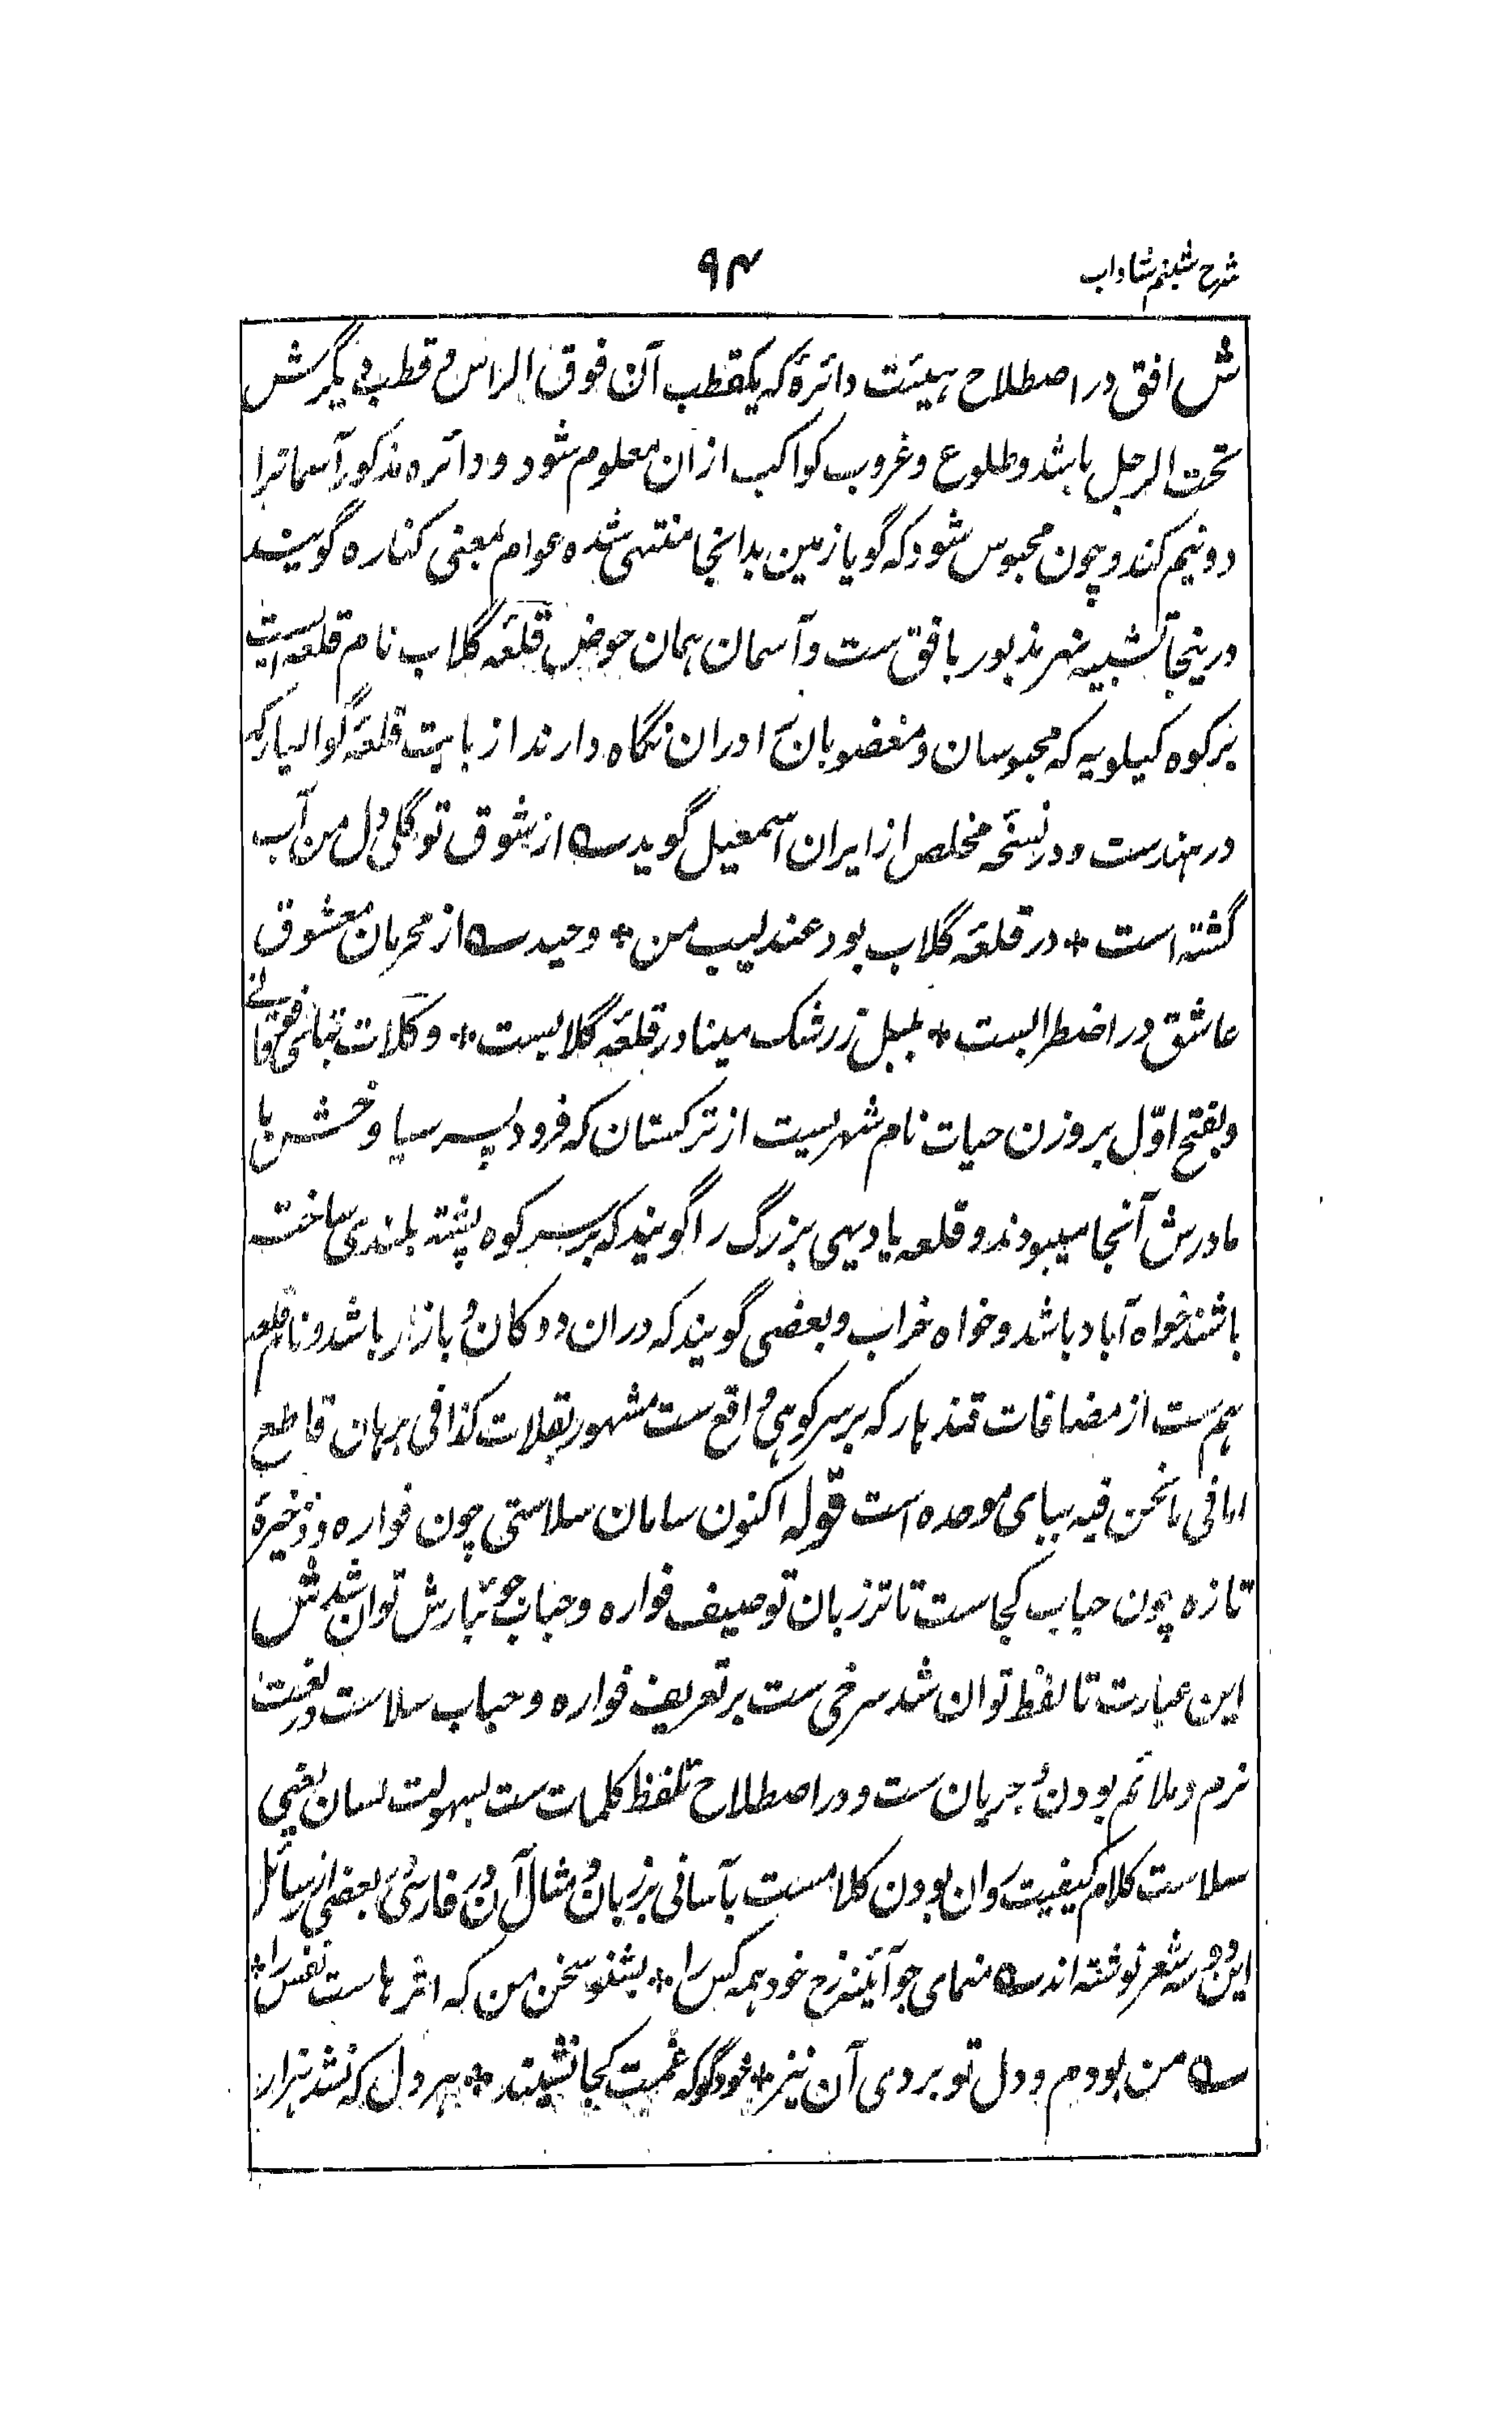 شرح شبنم شاداب
۹۴
ش افق در اصطلاح ہیئت دائرۂ کہ یکقطب آن فوق الراس و قطب دیگرش
تحت الرجل باشد و طلوع و غروب کواکب ازان معلوم شود و دائرہ مذکور آسمانرا
دو نیم کند و چون محبوس شود کہ گویا زمین بدانجا منتہی شدہ عوام بمعنی کنارہ گویند
درینجا تشبیہ نہر مذبور بافق ست و آسمان ہمان حوض قلعۂ گلاب نام قلعہ ایست
بر کوہ کیلویہ کہ محبوسان و مغضوبان را دران نگاہ دارند از بابت قلعۂ گوالیار کہ
در ہندست و در نسخۂ مخلص از ایران اسمعیل گوید ؎ از شوق تو گلی دل من آب
گشتہ است * در قلعۂ گلاب بود عندلیب من * وحید ؎ از محرمان معشوق
عاشق در اضطرابست * بلبل ز رشک مینا در قلعۂ گلابیست * و کلات بتای فوقانے
و بفتح اوّل بر وزن حیات نام شہریست از ترکستان کہ فرود پسر سیاوخش با
مادرش آنجا میبودند و قلعہ یا دیہی بزرگ را گویند کہ بر سر کوہ پشتہ بلندی ساخت
باشند خواہ آباد باشد و خواہ خراب و بعضی گویند کہ دران دوکان و بازار باشد و نام قلعہ
ہم ست از مضافات قندہار کہ بر سر کوہی واقع ست مشہور بقلات کذا فی برہان قاطع
اما فی ما نحن فیہ ببای موحدہ است قولہ اکنون سامان سلاستی چون فوارہ و ذخیرۂ
تازہ چون حباب کجاست تا تر زبان توصیف فوارہ و حباب جوئبارش توان شد ش
این عبارت تا لفظ توان شد سرخی ست بر تعریف فوارہ و حباب سلاست در لغت
نرم و ملائم بودن و جریان ست و در اصطلاح تلفظ کلمات ست بسہولت لسان یعنی
سلاست کلام کیفیت روان بودن کلامست بآسانی بر زبان و مثال آن در فارسی بعضی از رسائل
این دو سہ شعر نوشتہ اند ؎ منمای چو آئینہ رخ خود ہمہ کس را * بشنو سخن من کہ اثر ہاست نفس را *
؎ من بودم و دل تو بردی آن نیز * خود گو کہ غمت کجا نشیند * ہر دل کہ نشد ہزار